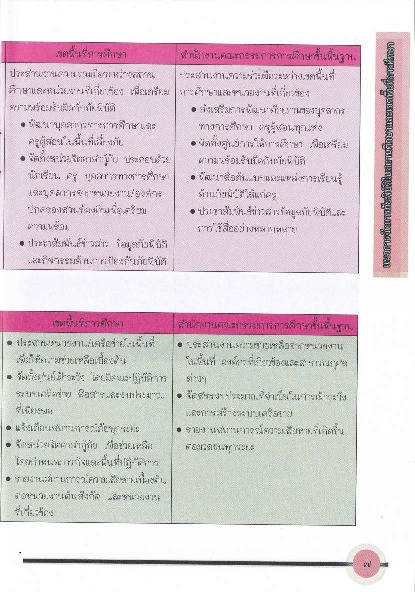 เขตพื้นที่การศึกษา
ประสานงานความร่วมมือระหว่างสถาน
ศึกษาและหน่วยงานที่เกี่ยวข้อง เพื่อเตรียม
ความพร้อมรับมือกับภัยพิบัติ
● พัฒนาบุคลากรทางการศึกษาและ
ครูผู้สอนในพื้นที่เสี่ยงภัย
● จัดตั้งหน่วยจิตอาสากู้ภัย ประกอบด้วย
นักเรียน ครู บุคลากรทางการศึกษา
และบุคลากรจากหน่วยงาน/องค์กร
ปกครองส่วนท้องถิ่นเพื่อเตรียม
ความพร้อม
● ประชาสัมพันธ์ข่าวสาร ข้อมูลภัยพิบัติ
และกิจกรรมด้านการป้องกันภัยพิบัติ
สำนักงานคณะกรรมการการศึกษาขั้นพื้นฐาน
ประสานงานความร่วมมือระหว่างเขตพื้นที่
การศึกษาและหน่วยงานที่เกี่ยวข้อง
● ส่งเสริมการพัฒนาศักยภาพของบุคลากร
ทางการศึกษา ครูผู้สอนทุกแห่ง
● จัดตั้งศูนย์การให้การศึกษา เพื่อเตรียม
ความพร้อมรับมือกับภัยพิบัติ
● พัฒนาสื่อต้นแบบและแหล่งการเรียนรู้
ด้านภัยพิบัติให้แก่ครู
● ประชาสัมพันธ์ข่าวสารข้อมูลภัยพิบัติและ
การใช้สื่ออย่างหลากหลาย
เขตพื้นที่การศึกษา
● ประสานหน่วยงาน/เครือข่ายในพื้นที่
เพื่อให้ความช่วยเหลือเบื้องต้น
● จัดตั้งศูนย์เฝ้าระวัง โดยมีคณะปฏิบัติการ
ระบบเครือข่าย สื่อสารและงบประมาณ
ที่เพียงพอ
● แจ้งเตือนสถานการณ์ภัยทุกระยะ
● จัดหน่วยจิตอาสากู้ภัย เพื่อช่วยเหลือ
โดยกำหนดภารกิจและพื้นที่ปฏิบัติการ
● รายงานสถานการณ์ความเสียหายเบื้องต้น
ต่อหน่วยงานต้นสังกัด และหน่วยงาน
ที่เกี่ยวข้อง
สำนักงานคณะกรรมการการศึกษาขั้นพื้นฐาน
● ประสานงานความช่วยเหลือจากหน่วยงาน
ในพื้นที่ องค์กรที่เกี่ยวข้องและสาธารณกุศล
ต่างๆ
● จัดสรรงบประมาณที่จำเป็นในการเฝ้าระวัง
และการสร้างระบบเครือข่าย
● รายงานสถานการณ์ความเสียหายที่เกิดขึ้น
ต่อมวลชนทุกระยะ
๗